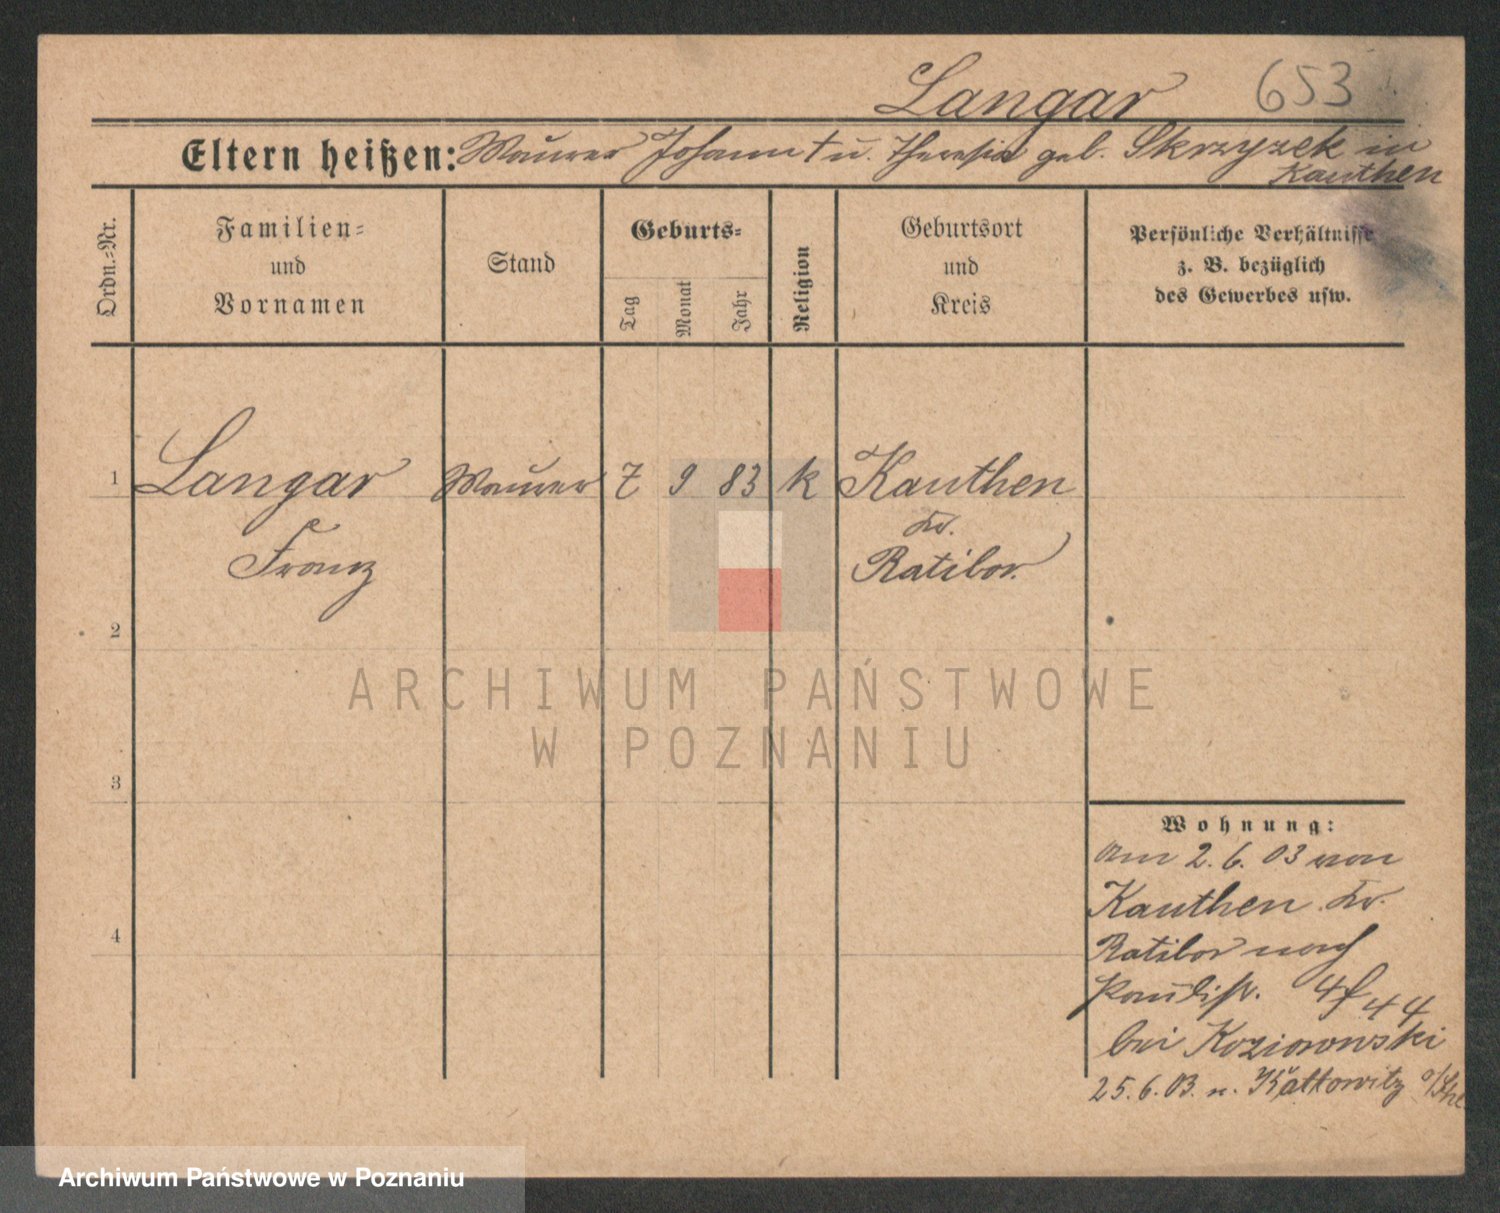 Langar 653
Eltern heißen: Maurer Johann † u. Theresia geb. Skrzyzek in
Kauthen
Ordn.-Nr.
Familien-
und
Vornamen
Stand
Geburts-
Tag
Monat
Jahr
Religion
Geburtsort
und
Kreis
Persönliche Verhältnisse
z. B. bezüglich
des Gewerbes usw.
1 Langar Maurer 7 9 83 k Kauthen
Kr.
Franz Ratibor.
2
ARCHIWUM PAŃSTWOWE
W POZNANIU
3
Wohnung:
am 2. 6. 03 von
Kauthen Kr.
4
Ratibor nach
44
bei
25. 6. 03. n. Kattowitz o/Schl.
Archiwum Państwowe w Poznaniu